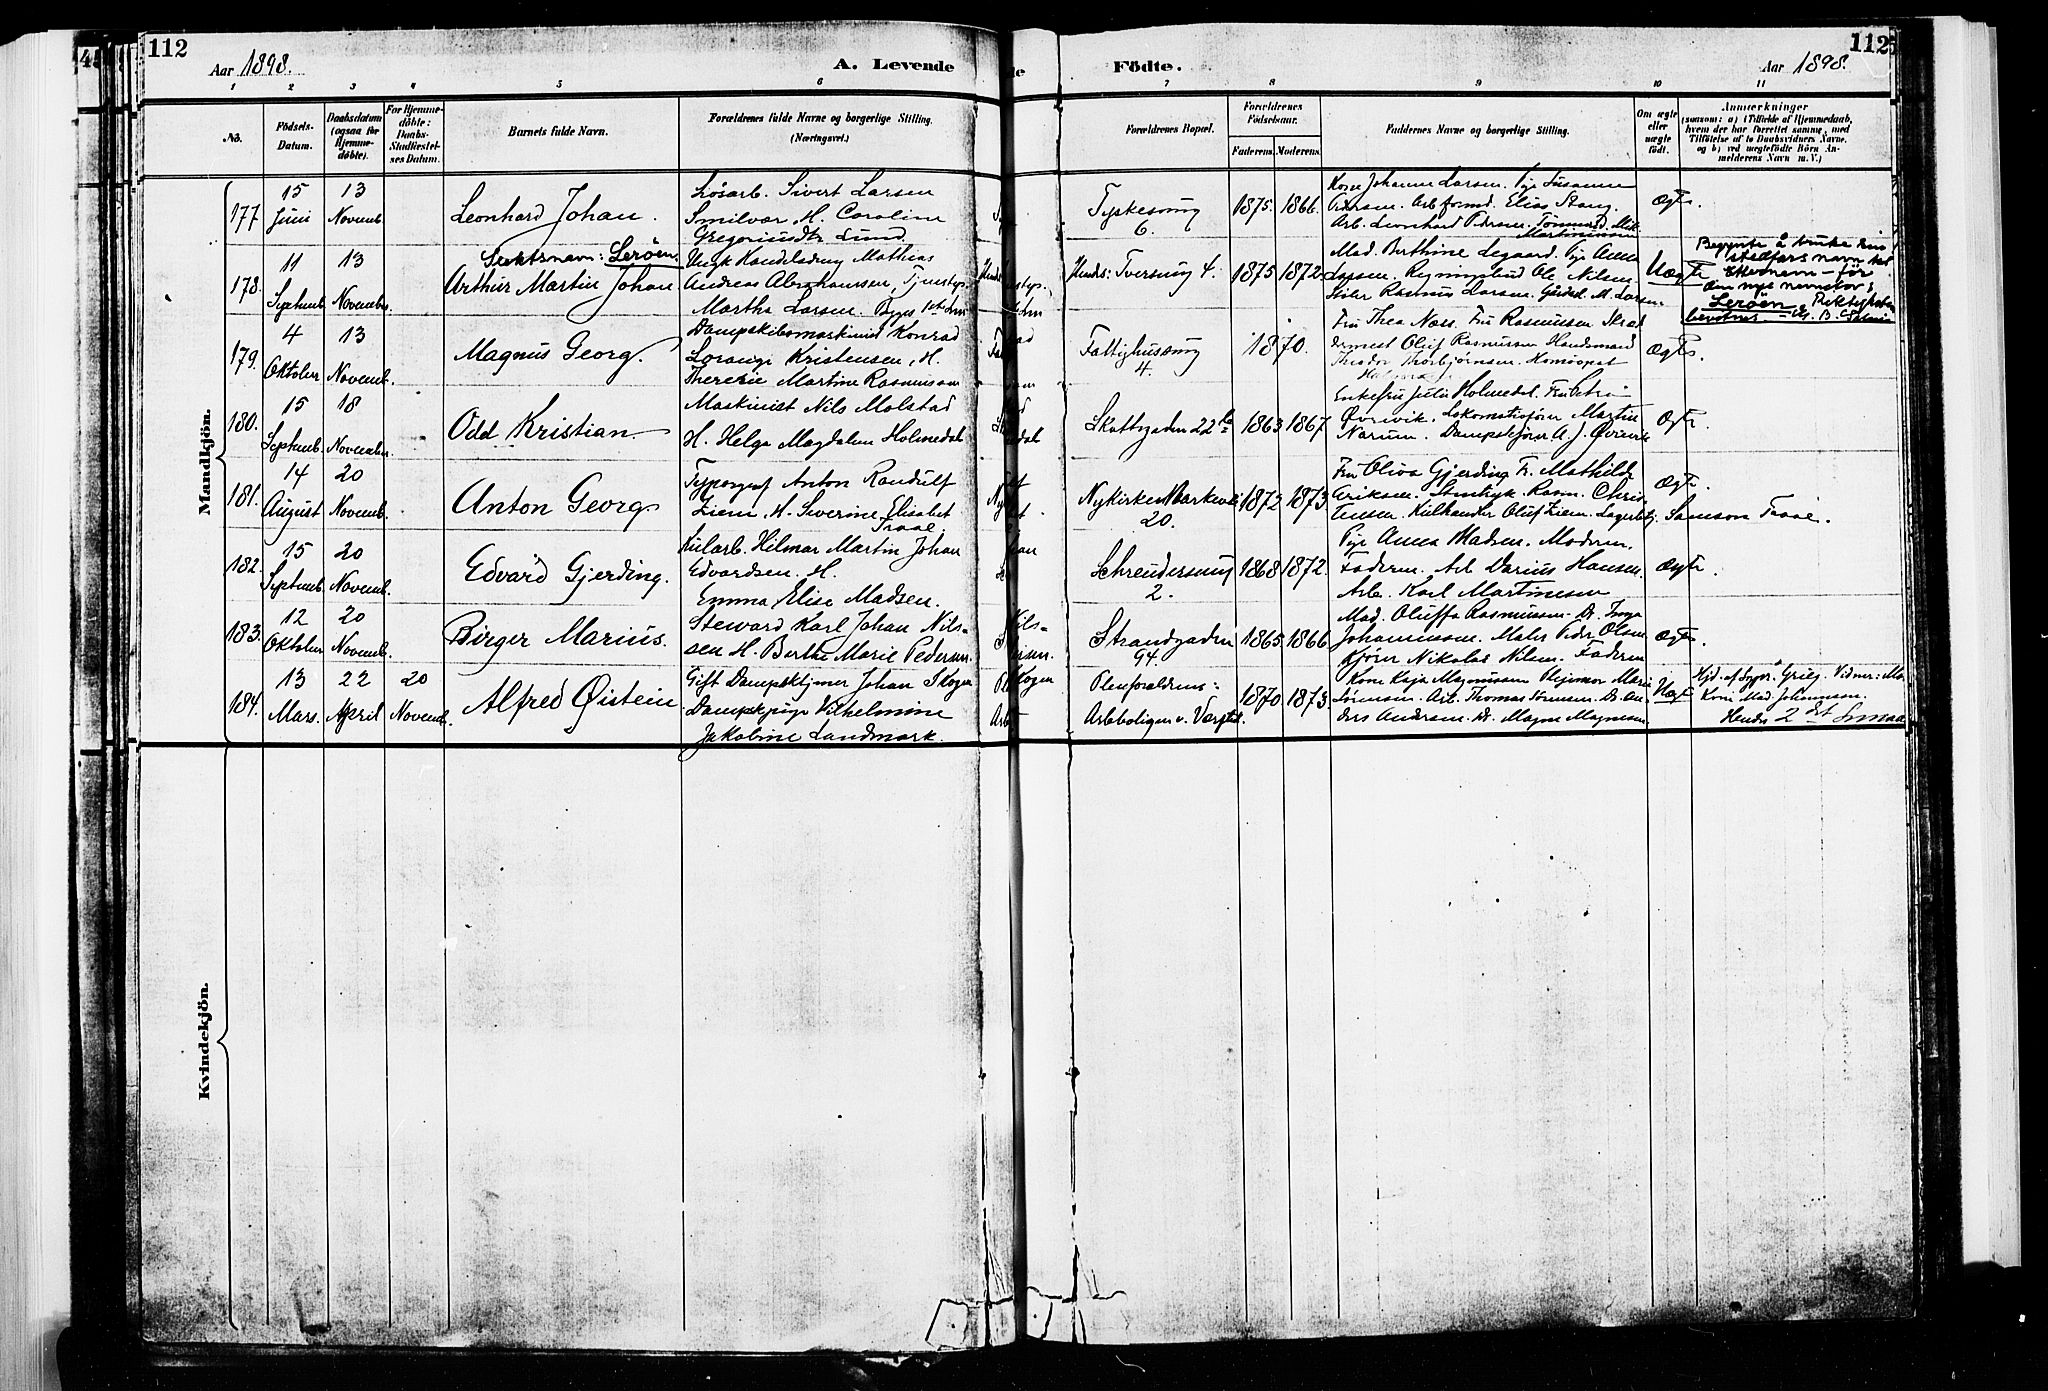 112
Aar 1898.
A. Levende
Födte.
Aar 1898.
112
1 2 3 4 5 6 7 8 9 10 11
No.
Födsels-
Datum.
Daabsdatum
(ogsaa for
Hjemme-
döbte).
For Hjemme-
döbte:
Daabs-
Stadfæstel-
ses Datum.
Barnets fulde Navn.
Forældrenes fulde Navne og borgerlige Stilling.
(Næringsvei.)
Forældrenes Bopæl.
Forældrenes
Födselsaar.
Faderens.
Moderens.
Faddernes Navne og borgerlige Stilling.
Om ægte
eller
uægte
födt.
Anmærkninger
(saasom: a) i Tilfælde af Hjemmedaab,
hvem der har forrettet samme, med
Tilföielse af to Daabsvidners Navne,
og b) ved uægtefödte Börn An-
melderens Navn m. V.)
Mandkjön.
177
15
Juni
13
Novemb.
Leonhard Johan.
Lösarb. Sivert Larsen
Smilvar H. Caroline
Gregoriusdtr Lund.
Tyskesmug
6.
1875.
1866.
Kone Johanne Larsen. Pige Susanne
Arb. formd. Elias Stang.
Arb. Leonhard Pedersen. Tömmerd. Mik.
Martinussen
Ægte.
178.
11
Septemb.
13
November.
Slektsnavn: Leröen.
Arthur Martin Johan
Ungk Handelsdreng Mathias
Andreas Abrahamsen, Tjenstep.
Martha Larsen. Begges 1ste
Hendes: Tversmug 4.
1875
1872
Mad. Berthine Legaard. Pige Anna
Larsen. Ole Nilsen
Rasmus Larsen. M. Larsen.
Uægte
Begynte å bruke sin
stedfars navn
etternavn - før
den nye navnelov:
Leröen.
179.
4
Oktober
13
Novemb.
Magnus Georg.
Dampskibsmaskinist Konrad
Lorange Kristensen, H.
Therese Martine Rasmussen
Fattighussmug
4.
1870.
Fru Thea Næss. Fru Rasmussen
Oluf Rasmussen Handsmand
Theodor Thorbjørnsen. Homöopat
Ægte.
180.
15
Septemb.
18
November.
Odd Kristian.
Maskinist Nils Molstad
H. Helga Magdalene Holmedal
Skottegaden 22
1863
1867
Enkefru Julie Holmedal. Fru Petra
Øvrevik. Lokomotivfører Martin
Narum. A. J. Øvrevik
Ægte.
181.
14
August
20
Novemb.
Anton Georg
Typograf Anton Randulf
Ziem. H. Severine Elisabet
Traae.
Nykirke Markevei
20.
1872
1873
Fru Oliva Gjerding Fr. Mathilde
Eriksen. Stentryk. Rasm. Chris-
tensen. Kulhandler Oluf Ziem. Lagerbetj. Samson Traae.
Ægte.
182.
15
Septemb.
20
Novemb.
Edvard Gjerding.
Kularb. Hilmar Martin Johan
Edvardsen. H.
Emma Elise Madsen.
Schreudersmug
2.
1868
1872.
Pige Anna Madsen. Moderen.
Faderen. Arb. Darius Hansen.
Arb. Karl Martinesen
Ægte.
183.
12
Oktober
20
Novemb.
Birger Marius.
Steward Karl Johan Nils-
sen H. Berthe Marie Pedersen.
Strandgaden
94.
1865
1866
Mad. Oluffa Rasmussen. Do. Inga
Johannessen. Maler Peder Olsen
Kjører Nikolai Nilsen. Faderen
Ægte.
184.
13
Mars.
22
April
20
Novemb.
Alfred Øistein
Gift Dampsktjener Johan Skogen
Dampskjpige Vilhelmine
Jakobine Landmark.
Pleieforældrene:
Arbboligen v. Vergeld.
1870
1873
Kone Kaja Magnussen Hjemmv Marie
Sörensen. Arb. Thomas Sörensen. Do. An-
ders Andersen. Do. Magne Magnesen
Uægt.
Hjd. af Sypr. Grieg. Vidner: Ma
Kone Mad. Johannesen.
Hendes 2det
Kvindekjön.